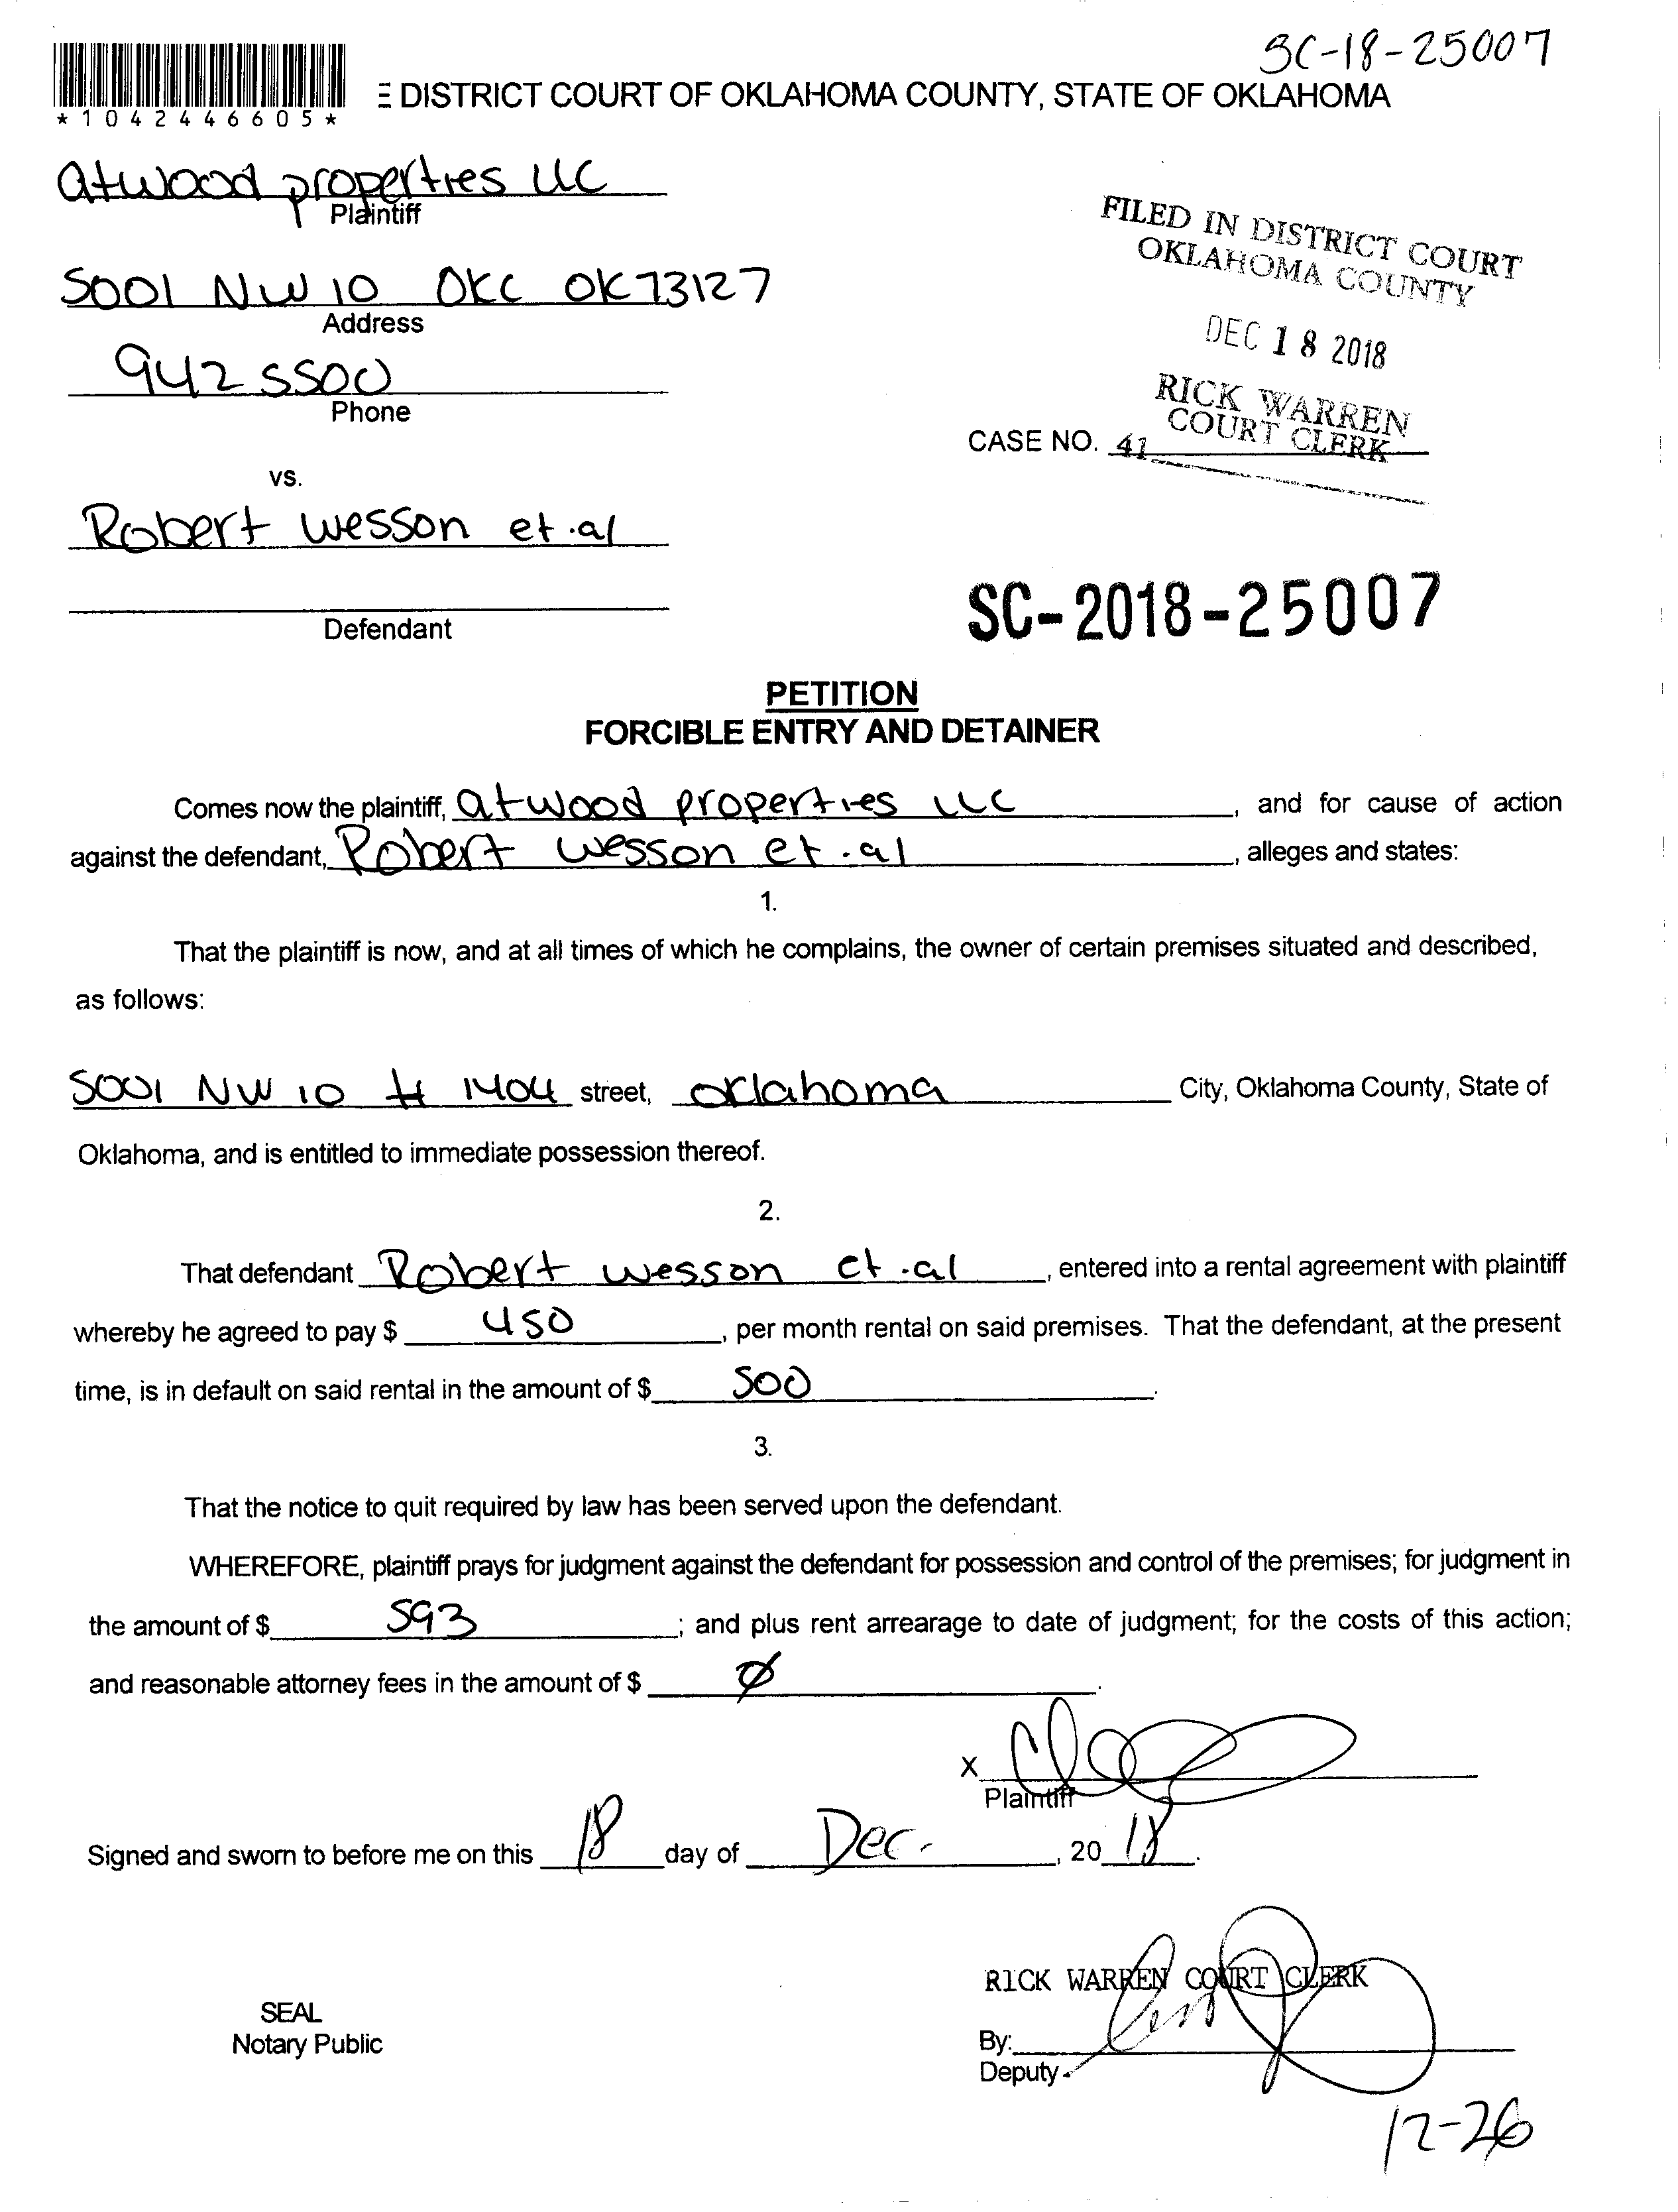 SC-18-25007
*1042446605*
E DISTRICT COURT OF OKLAHOMA COUNTY, STATE OF OKLAHOMA
atwood properties LLC
Plaintiff
FILED IN DISTRICT COURT
OKLAHOMA COUNTY
5001 NW 10 OKC OK 73127
Address
DEC 18 2018
942 5500
Phone
RICK WARREN
COURT CLERK
CASE NO. 41
vs.
Robert wesson et.al
Defendant
SC-2018-25007
PETITION
FORCIBLE ENTRY AND DETAINER
Comes now the plaintiff, atwood properties LLC, and for cause of action
against the defendant, Robert wesson et.al, alleges and states:
1.
That the plaintiff is now, and at all times of which he complains, the owner of certain premises situated and described,
as follows:
5001 NW 10 # 1404 street, oklahoma City, Oklahoma County, State of
Oklahoma, and is entitled to immediate possession thereof.
2.
That defendant Robert wesson et.al, entered into a rental agreement with plaintiff
whereby he agreed to pay $ 450, per month rental on said premises. That the defendant, at the present
time, is in default on said rental in the amount of $ 500.
3.
That the notice to quit required by law has been served upon the defendant.
WHEREFORE, plaintiff prays for judgment against the defendant for possession and control of the premises; for judgment in
the amount of $ 593; and plus rent arrearage to date of judgment; for the costs of this action;
and reasonable attorney fees in the amount of $ Ø.
X
Plaintiff
Signed and sworn to before me on this 18 day of Dec., 20 18.
RICK WARREN COURT CLERK
SEAL
Notary Public
By:
Deputy
12-26